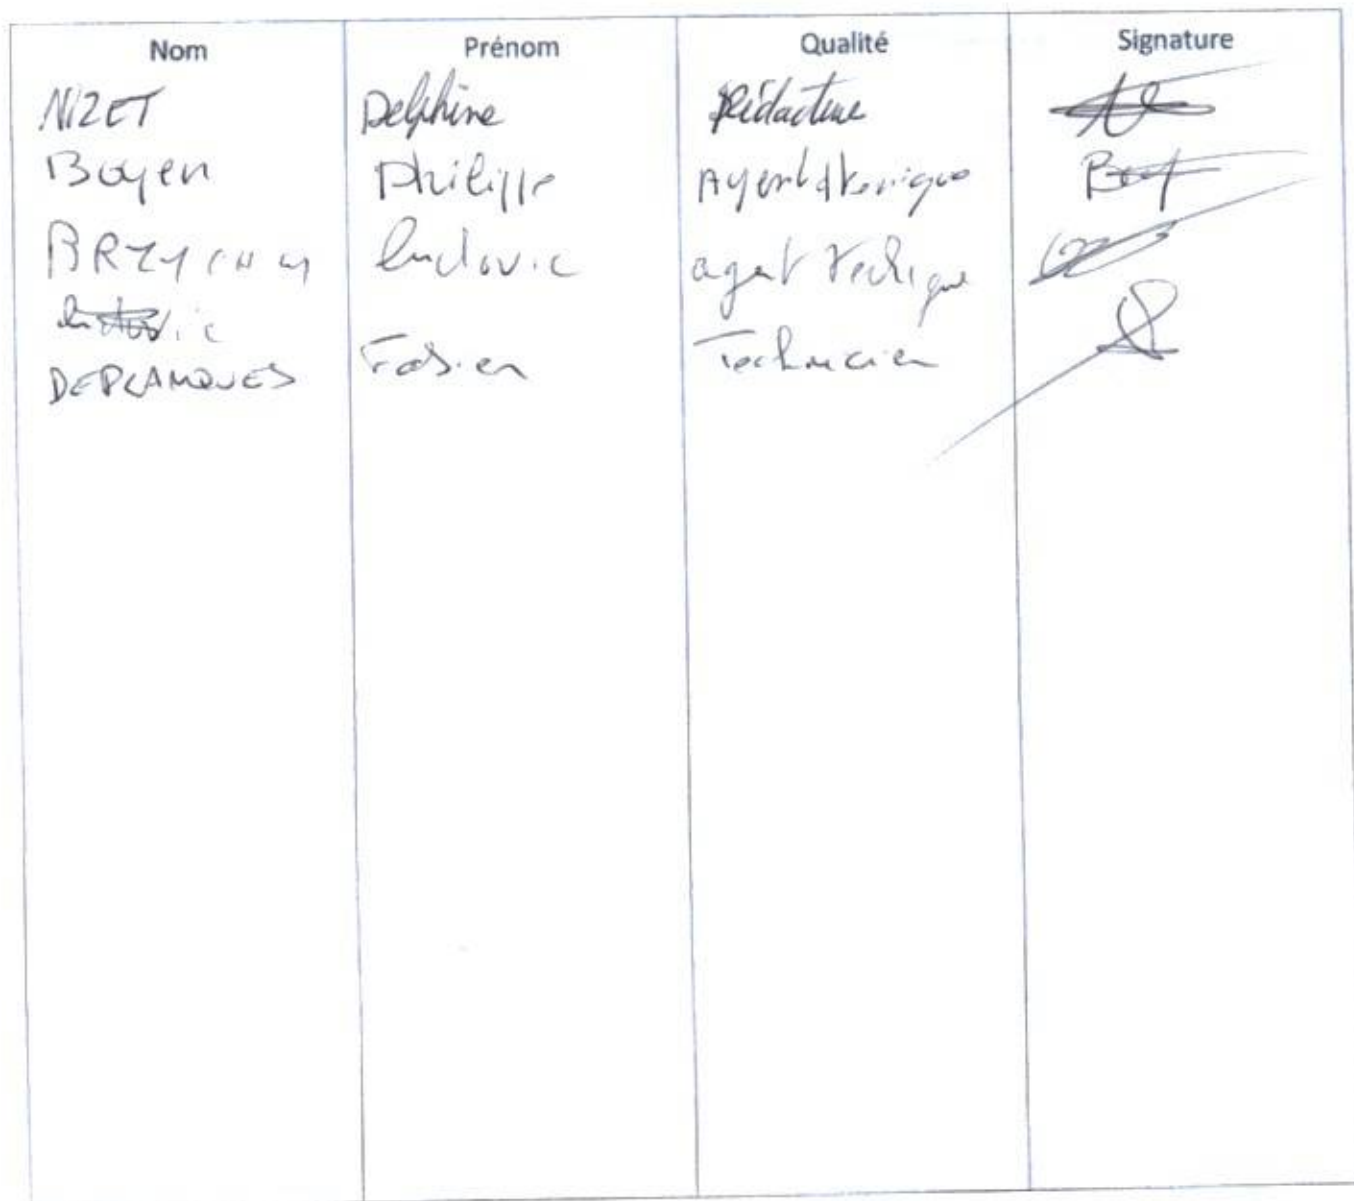 Nom Prénom Qualité Signature
NIZET Delphine Rédacteur
Boyen Philippe Agent technique
BRZYCHCY Ludovic agent technique
DEPLANQUES Fabien Technicien